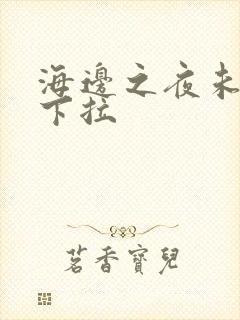 海邊之夜未
下拉
茗香寶兒